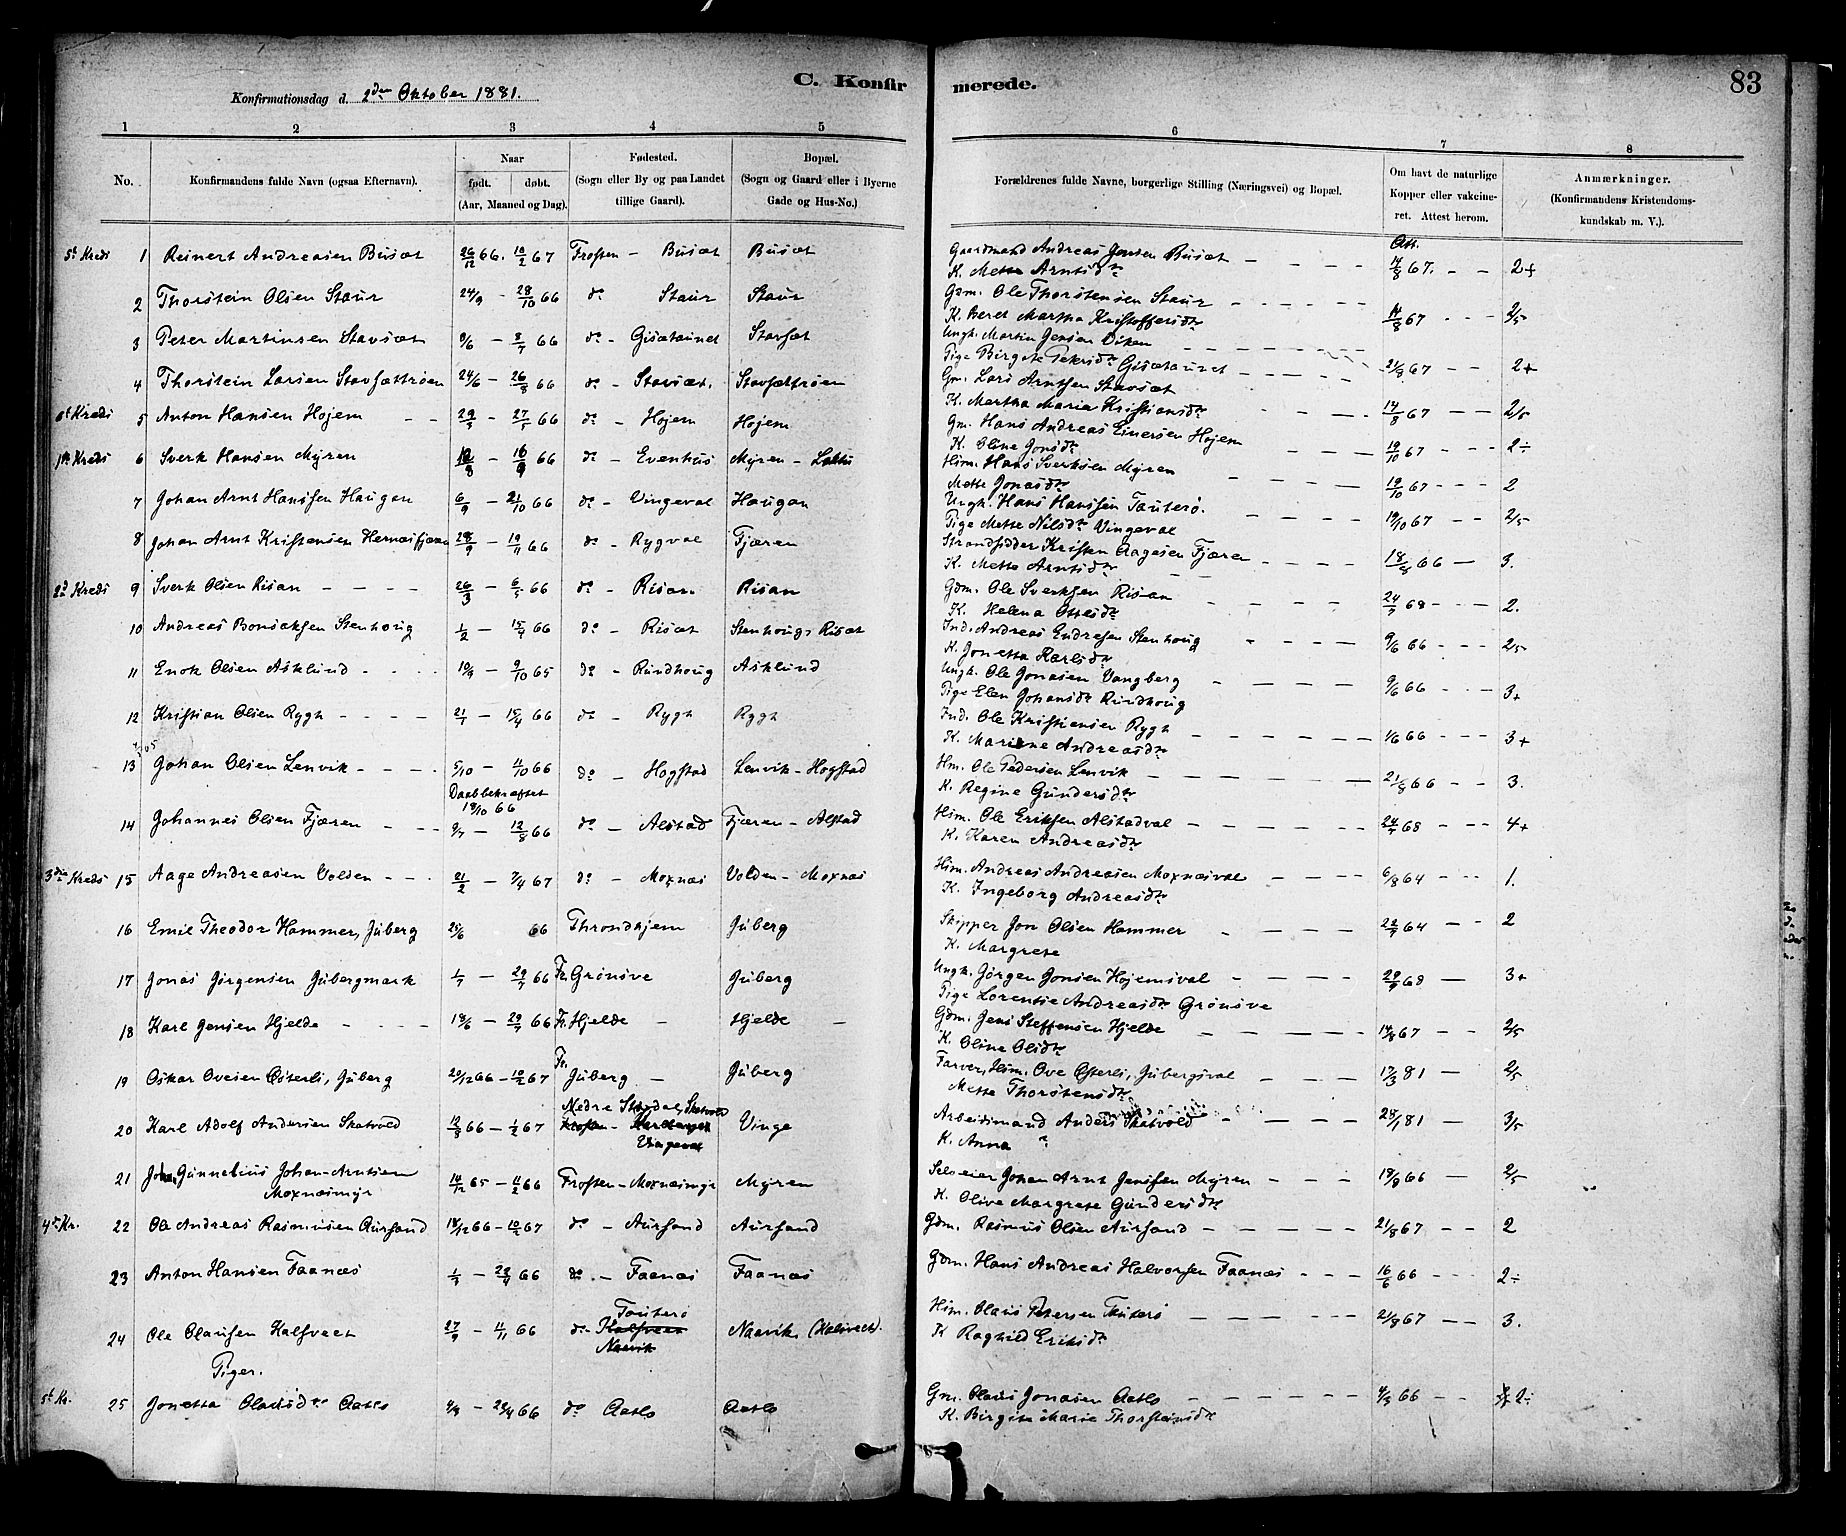 C. Konfirmerede.
83
Konfirmationsdag d. 2den Oktober 1881.
1 2 3 4 5 6 7 8
No.
Konfirmandens fulde Navn (ogsaa Efternavn).
Naar
født. døbt.
(Aar, Maaned og Dag).
Fødested.
(Sogn eller By og paa Landet
tillige Gaard).
Bopæl.
(Sogn og Gaard eller i Byerne
Gade og Hus-No.)
Forældrenes fulde Navne, borgerlige Stilling (Næringsvei) og Bopæl.
Om havt de naturlige
Kopper eller vakcine-
ret. Attest herom.
Anmærkninger.
(Konfirmandens Kristendoms-
kundskab m. V.).
Att.
5t Kreds 1 Reinert Andreasen Busæt 26/12 66. 10/2 67 Frosten - Busæt Busæt Gaardmand Andreas Jensen Busæt 14/8 67. 2+
K. Mette Arntsdtr
2 Thorstein Olsen Staur 24/9 - 28/10 66 do Staur Staur Gdm. Ole Thorstensen Staur 14/8 67 2/5
K. Beret Martha Kristoffersdtr
3 Peter Martinsen Stavsæt 9/6 - 8/7 66 do - Gisætaunet Stavsæt Ungk. Martin Jensen 21/8 67 2+
Pige Birgete Petersdtr Gisætaunet
4 Thorstein Larsen Stavsættrøen 24/6 - 26/8 66 do - Stavsæt. Stavsættrøen Gm. Lars Arntsen Stavsæt 14/8 67 2/5
K. Martha Maria Kristiansdtr
6t Kreds 5 Anton Hansen Hojem 29/3 - 27/5 66 do - Hojem Hojem Gm. Hans Andreas Einersen Hojem 19/10 67 2÷
K. Oline Jonsdtr
1ste Kreds 6 Sverk Hansen Myren 12/8 - 16/9 66 do - Evenhus Myren - Hsm. Hans Sverksen Myren 19/10 67 2
Mette Jonasdtr
7 Johan Arnt Hanssen Haugan 6/9 - 21/10 66 do - Vingeval Haugan Ungk. Hans Hanssen Tauterø. 19/10 67 2/5
Pige Mette Nilsdtr Vingeval
8 Johan Arnt Kristensen 28/9 - 19/11 66 do - Rygval Fjæren Strandsidder Kristen Aagesen Fjæren 18/8 66 3.
K. Mette Arntsdtr
2d Kreds 9 Sverk Olsen Risan 26/3 - 6/5 66 do - Risan Risan Gdm. Ole Sverksen Risan 24/7 68 2.
K. Helena Ottesdtr
10 Andreas Bonsaksen Stenhoug 1/2 - 15/4 66 do - Risæt Stenhoug, Risæt Ind. Andreas Endresen Stenhoug 9/6 66 2/5
K. Jonetta Karlsdtr
11 Enok Olsen Asklund 10/9 - 9/10 65 do - Rindhoug Asklund Ungk. Ole Jonasen Vangberg 9/6 66 3+
Pige Elen Johansdtr Rindhoug
12 Kristian Olsen Rygh 21/1 - 15/4 66 do - Rygh Rygh Ind. Ole Kristiansen Rygh 1/6 66 3+
K. Mariane Andreasdtr
13 Johan Olsen Lenvik 5/10 - 11/10 66 do - Hogstad Lenvik - Hogstad Hm. Ole Pedersen Lenvik 21/8 66 3.
Daab bekræftet K. Regine Gundersdtr
18/10 66
14 Johannes Olsen Fjæren 9/7 - 12/8 66 do - Alstad Fjæren - Alstad Hsm. Ole Eriksen Alstadval 24/7 68 4+
K. Karen Andreasdtr
3die Kreds 15 Aage Andreasen Volden 21/2 - 7/4 67 do - Moxnæs Volden - Moxnæs Hsm. Andreas Andreasen Moxnæsval 6/8 64 1.
K. Ingeborg Andreasdtr
16 Emil Theodor Hammer, Juberg 25/6 66 Throndhjem Juberg Skipper Jon Olsen Hammer 22/7 64 2
K. Margrete
17 Jonas Jørgensen Jubergmark 1/7 - 29/7 66 Fr. Grönsve Juberg Ungk. Jørgen Jonsen Hojemsval 29/7 68 3+
Pige Lorentse Andreasdtr Grönsve
18 Karl Jensen Hjelde 18/6 - 29/7 66 Fr. Hjelde Hjelde Gdm. Jens Steffensen Hjelde 14/8 67 2/5
K. Oline Olsdtr
19 Oskar Ovesen Østerli, Juberg 20/12 66 - 10/2 67 Fr. Juberg Juberg Farver, Hsm. Ove Østerli, Jubergsval 17/3 81 2/5
Mette Thorstensdtr
20 Karl Adolf Andersen Skatvold 12/3 66 - 1/2 67 Nedre Stjørdal, Skatvold Vinge Arbeidsmand Anders Skatvold 28/1 81 3/5
Vingeval K. Anna
21 Gunnelius Johan-Arntsen 14/12 65 - 11/2 66 Frosten - Moxnæsmyr Myren Selveier Johan Arnt Jenssen Myren 18/9 66 2/5
Moxnæsmyr K. Olive Margrete Gundersdtr
4de Kr. 22 Ole Andreas Rasmusen Aursand 18/12 66 - 10/2 67 do - Aursand Aursand Gdm. Rasmus Olsen Aursand 21/8 67 2
23 Anton Hansen Faanæs 1/3 - 22/4 66 do - Faanæs Faanæs Gdm. Hans Andreas Halvorsen Faanæs 16/6 66 2÷
24 Ole Olaussen Kalsveet 27/9 - 11/11 66 do - Tauterø Naavik (Kalsveet). Hsm. Olaus Petersen Tauterø 21/8 67 3.
Naavik K Raghild Eriksdtr
Piger.
5t Kr. 25 Jonetta Olausdtr Aatlo 9/3 - 22/4 66 do Aatlo Aatlo Gm. Olaus Jonasen Aatlo 4/5 66 2÷
K. Birgita Marie Thorsteinsdtr